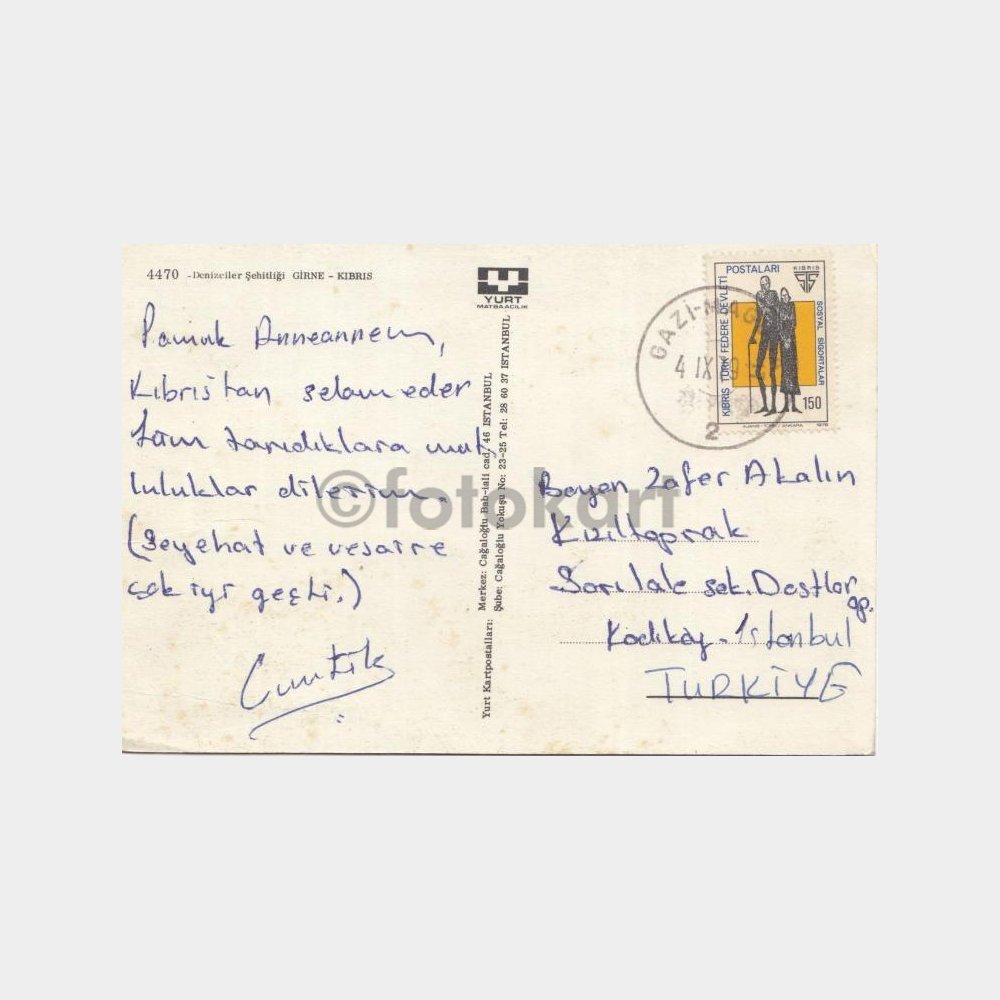 4470 -Denizciler Şehitliği GİRNE - KIBRIS
Pamuk Anneannem,
Kıbrıstan selam eder
tüm tanıdıklara mut
luluklar dilerim.
(Seyehat ve vesaire
çok iyi geçti.)
YURT
MATBAACILIK
Yurt Kartpostalları: Merkez: Cağaloğlu Bab-ıali cad. 46 ISTANBUL
Şube: Cağaloğlu Yokuşu No: 23-25 Tel: 28 60 37 ISTANBUL
GAZİ-MAG
4 IX
2
KIBRIS TÜRK FEDERE DEVLETİ
POSTALARI
KIBRIS
SOSYAL SİGORTALAR
150
1978
Bayan Zafer Akalın
Kızıltoprak
Sarılale sok. Dostlar
ap.
Kadıköy - İstanbul
TURKİYE
©fotokart